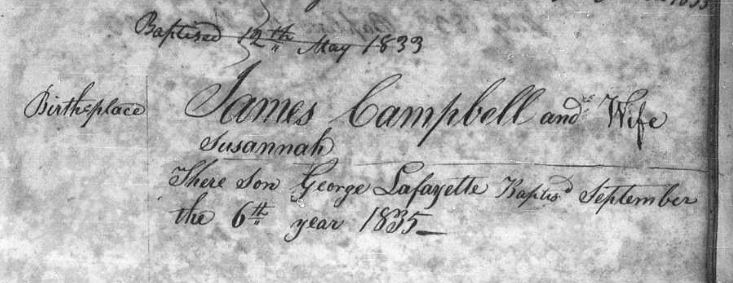 1833
Baptised 12th May 1833
Birthplace
James Campbell and Wife
Susannah
There Son George Lafayette Baptisd September
the 6th year 1835